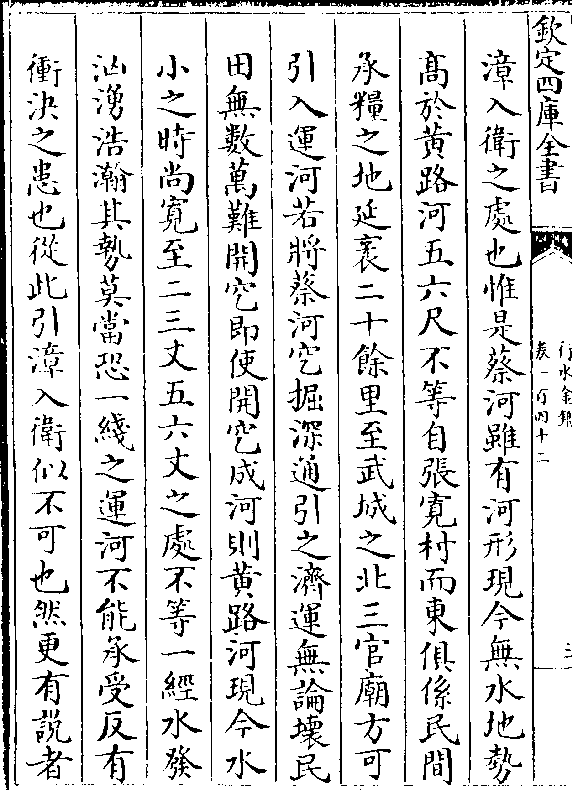 欽定四庫全書
行水金鑑
卷一百四十二
三
漳入衛之處也惟是蔡河雖有河形現今無水地勢
髙於黄路河五六尺不等自張寛村而東俱係民間
承糧之地延袤二十餘里至武城之北三官廟方可
引入運河若將蔡河空掘深通引之濟運無論壊民
田無數萬難開空即使開空成河則黄路河現今水
小之時尚寛至二三丈五六丈之處不等一經水發
汹湧浩瀚其勢莫當恐一綫之運河不能承受反有
衝決之患也從此引漳入衛似不可也然更有説者